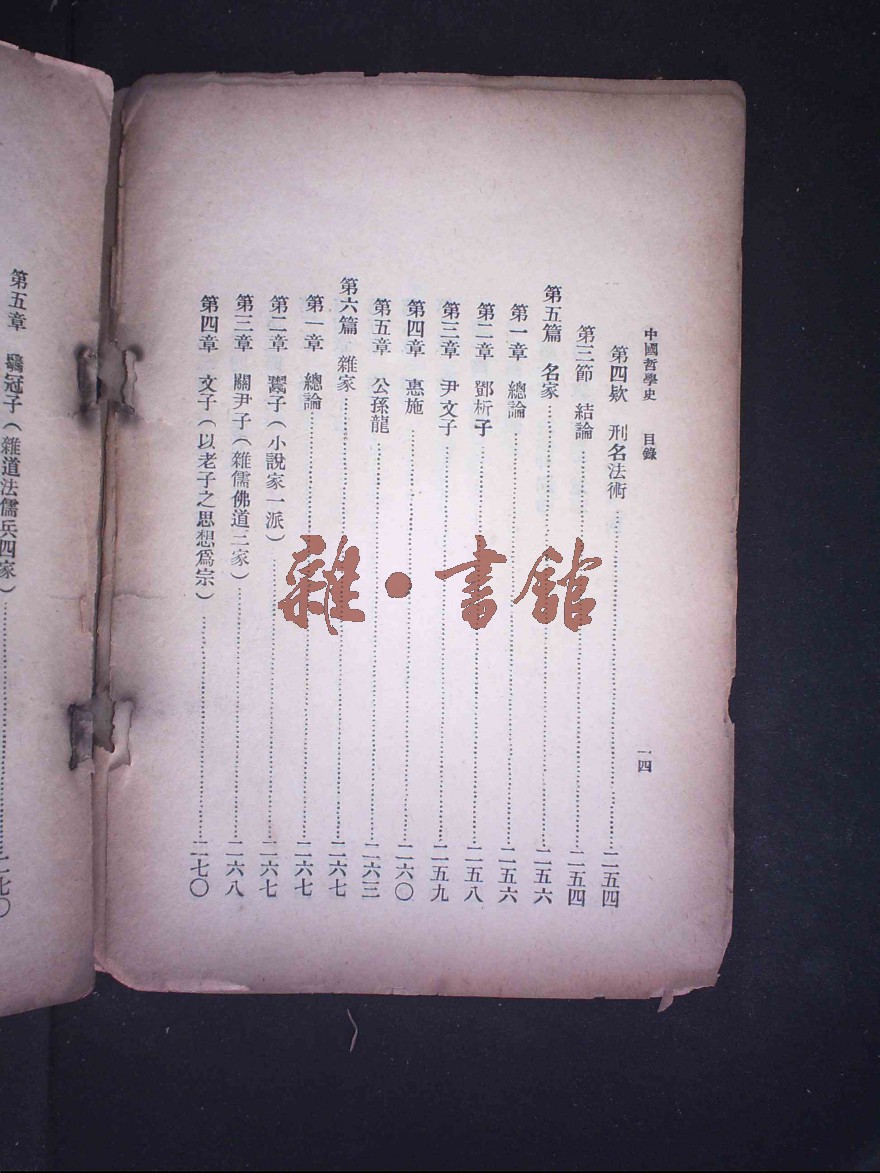 中國哲學史　目錄
一四
第四欵　刑名法術……二五四
第三節　結論……二五四
第五篇　名家……二五六
第一章　總論……二五六
第二章　鄧析子……二五八
第三章　尹文子……二五九
第四章　惠施……二六〇
第五章　公孫龍……二六三
第六篇　雜家……二六七
第一章　總論……二六七
第二章　鬻子（小說家一派）……二六七
第三章　關尹子（雜儒佛道三家）……二六八
第四章　文子（以老子之思想爲宗）……二七〇
第五章　鶡冠子（雜道法儒兵四家）……二七〇
雜·書館